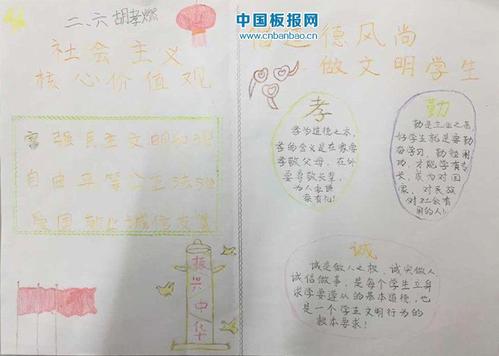 中国板报网
www.cnbanbao.cn
二、六 胡孝燃
社会主义
核心价值观
富强民主文明和谐
自由平等公正法治
爱国敬业诚信友善
振兴中华
倡道德风尚
做文明学生
孝
孝为道德之本,
孝的含义是在家要
孝敬父母,在外
要尊敬长辈,
为人表
有礼!
勤
勤是立业之基
好学生就是要勤
奋学习,勤
功,才能学有专
长,成为对国
家,对民族
对社会有
用的人!
诚
诚是做人之根、诚实做人
诚信做事,是每个学生立身
求学要遵从的基本道德,也
是一个学生文明行为的
根本要求!